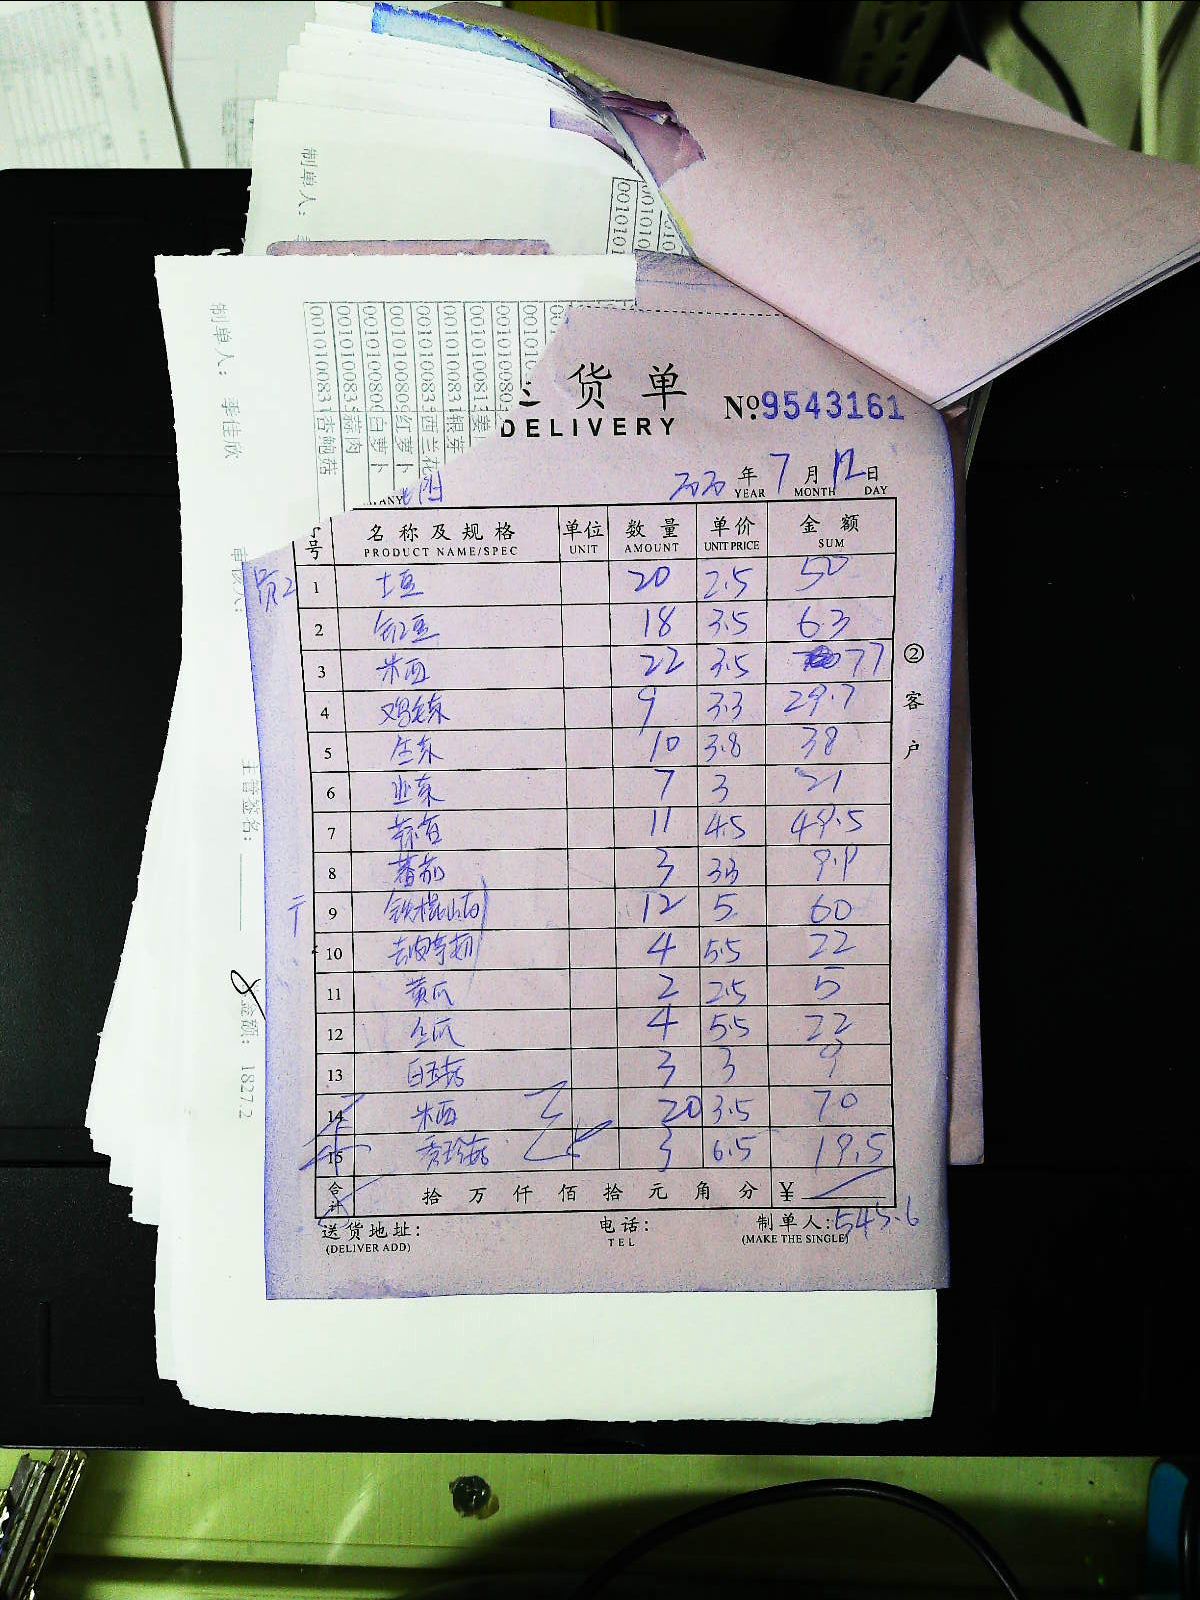 制单人：
制单人： 李佳欣
0010100831 杏鲍菇
001010083 蒜肉
0010100800 白萝卜
0010100809 红萝卜
001010083 西兰花
0010100831 银芽
001010081 姜
送货单
DELIVERY
№ 9543161
2020 年 7 月 12 日
YEAR MONTH DAY
号 名称及规格 单位 数量 单价 金额
PRODUCT NAME/SPEC UNIT AMOUNT UNIT PRICE SUM
1 土豆 20 2.5 50
2 豆 18 3.5 63
3 米西 22 3.5 77
4 鸡毛菜 9 3.3 29.7
5 生菜 10 3.8 38
6 韭菜 7 3 21
7 11 4.5 49.5
8 番茄 3 3.3 9.9
9 铁棍山药 12 5 60
10 去皮 4 5.5 22
11 黄瓜 2 2.5 5
12 瓜 4 5.5 22
13 白玉菇 3 3 9
14 米西 20 3.5 70
15 3 6.5 19.5
合计 拾 万 仟 佰 拾 元 角 分 ¥
545.6
送货地址： 电话： 制单人：
(DELIVER ADD) TEL (MAKE THE SINGLE)
②客户
主管签名：
金额： 1827.2